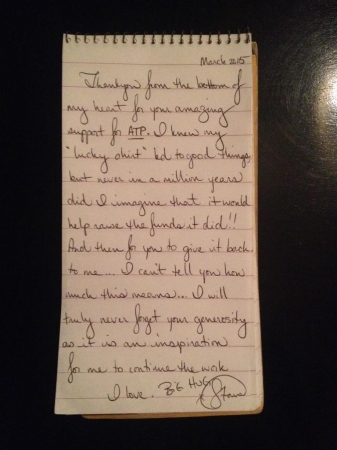 March 2015
Thankyou from the bottom of
my heart for your amazing
support for ATP. I knew my
"lucky shirt" led to good things,
but never in a million years
did I imagine that it would
help raise the funds it did!!
And then for you to give it back
to me... I can't tell you how
much this means... I will
truly never forget your generosity
as it is an inspiration
for me to continue the work
I love. Big HUG